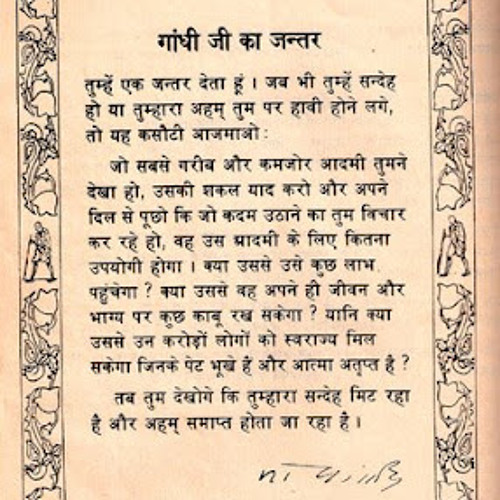 गांधी जी का जन्तर
तुम्हें एक जन्तर देता हूं । जब भी तुम्हें सन्देह
हो या तुम्हारा अहम् तुम पर हावी होने लगे,
तो यह कसौटी आजमाओ :
जो सबसे गरीब और कमजोर आदमी तुमने
देखा हो, उसकी शकल याद करो और अपने
दिल से पूछो कि जो कदम उठाने का तुम विचार
कर रहे हो, वह उस आदमी के लिए कितना
उपयोगी होगा । क्या उससे उसे कुछ लाभ
पहुंचेगा ? क्या उससे वह अपने ही जीवन और
भाग्य पर कुछ काबू रख सकेगा ? यानि क्या
उससे उन करोड़ों लोगों को स्वराज्य मिल
सकेगा जिनके पेट भूखे हैं और आत्मा अतृप्त है ?
तब तुम देखोगे कि तुम्हारा सन्देह मिट रहा
है और अहम् समाप्त होता जा रहा है ।